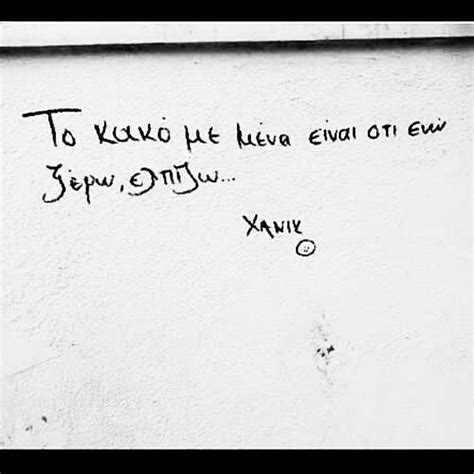 Το κακό με μένα είναι οτι ενώ
ξέρω, ελπίζω...
ΧΑΝΙΚ